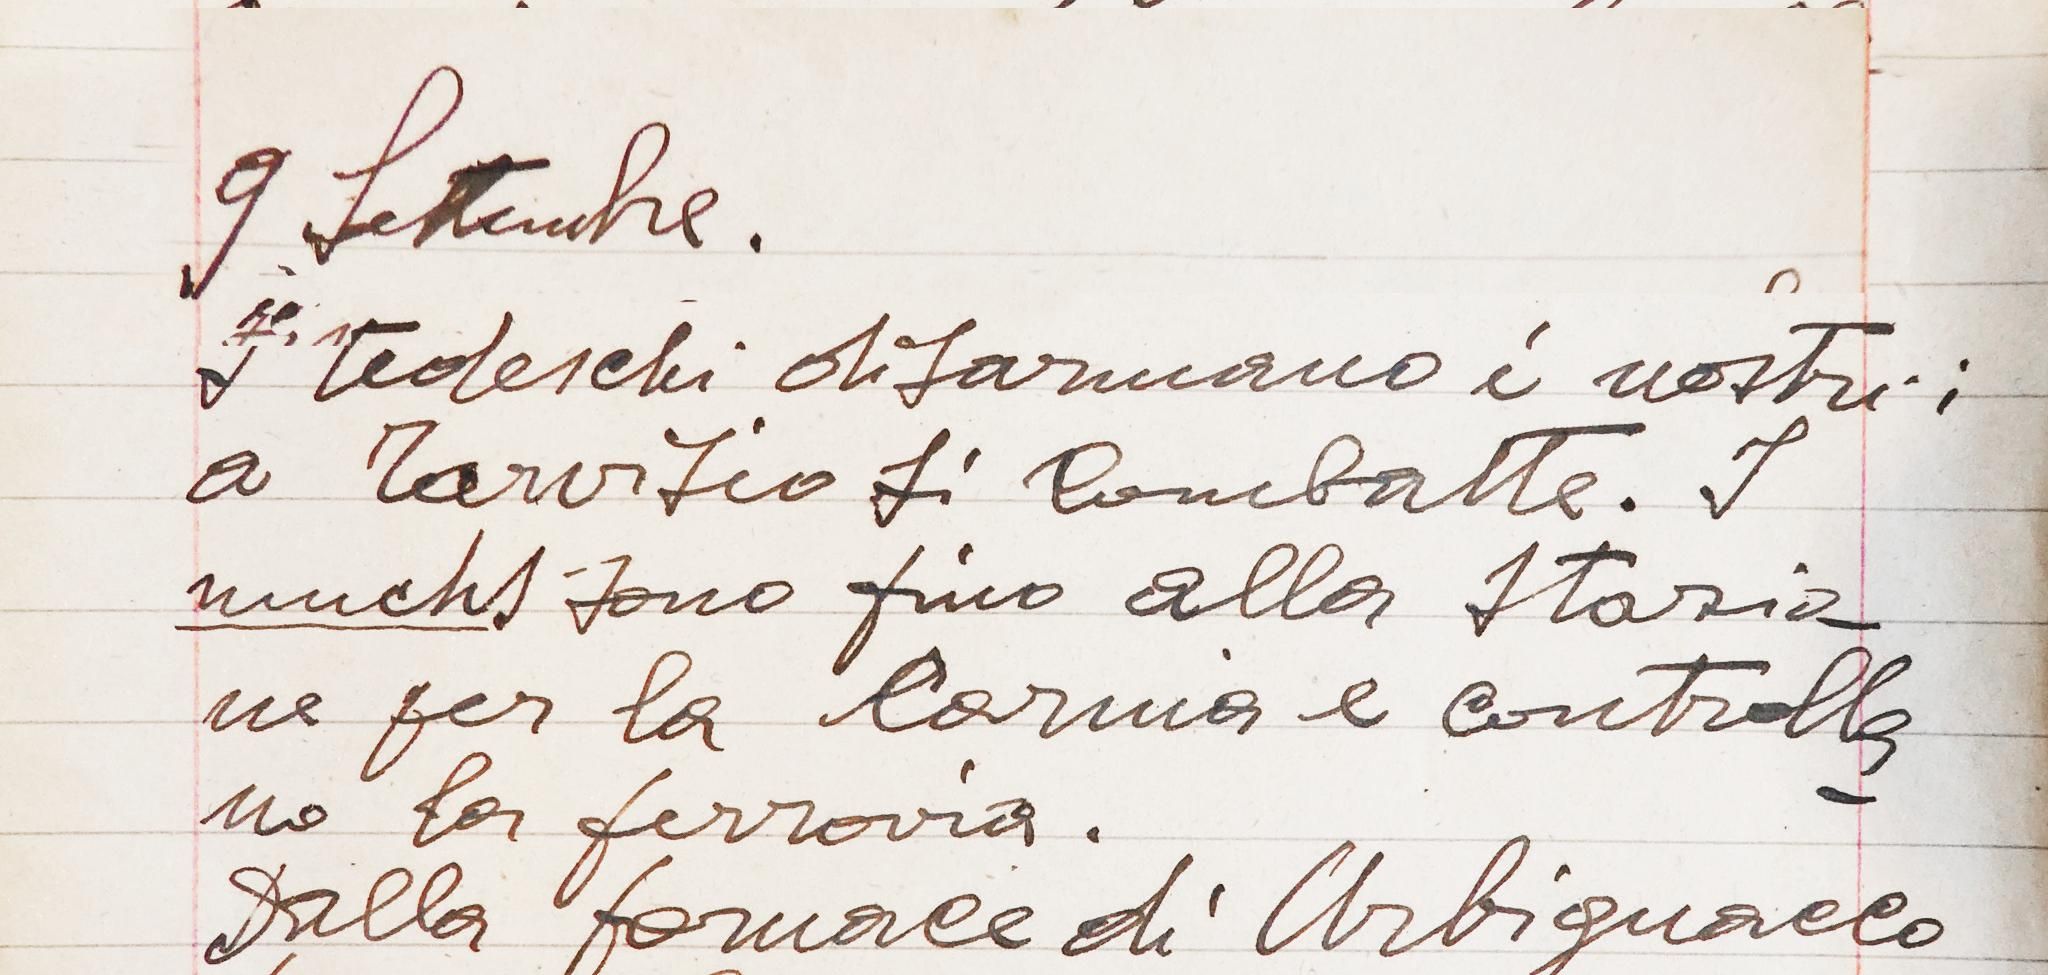 9 Settembre.
I tedeschi disarmano i nostri;
a Tarvisio si combatte. I
muchs sono fino alla Stazio
ne per la Carnia e controlla
no la ferrovia.
Dalla fornace di Urbignacco